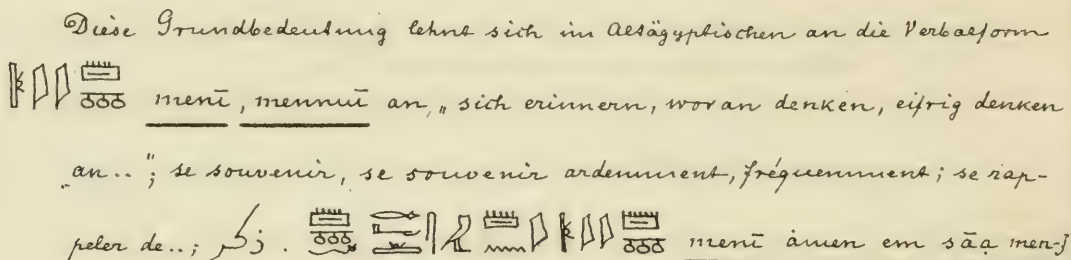 Diese Grundbedeutung lehnt sich im Altägyptischen an die Verbalform
menī, mennuī an, „sich erinnern, woran denken, eifrig denken
„an.."; se souvenir, se souvenir ardemment, fréquemment; se rap-
peler de..; ذكر. menī ȧmen em sāa men-}